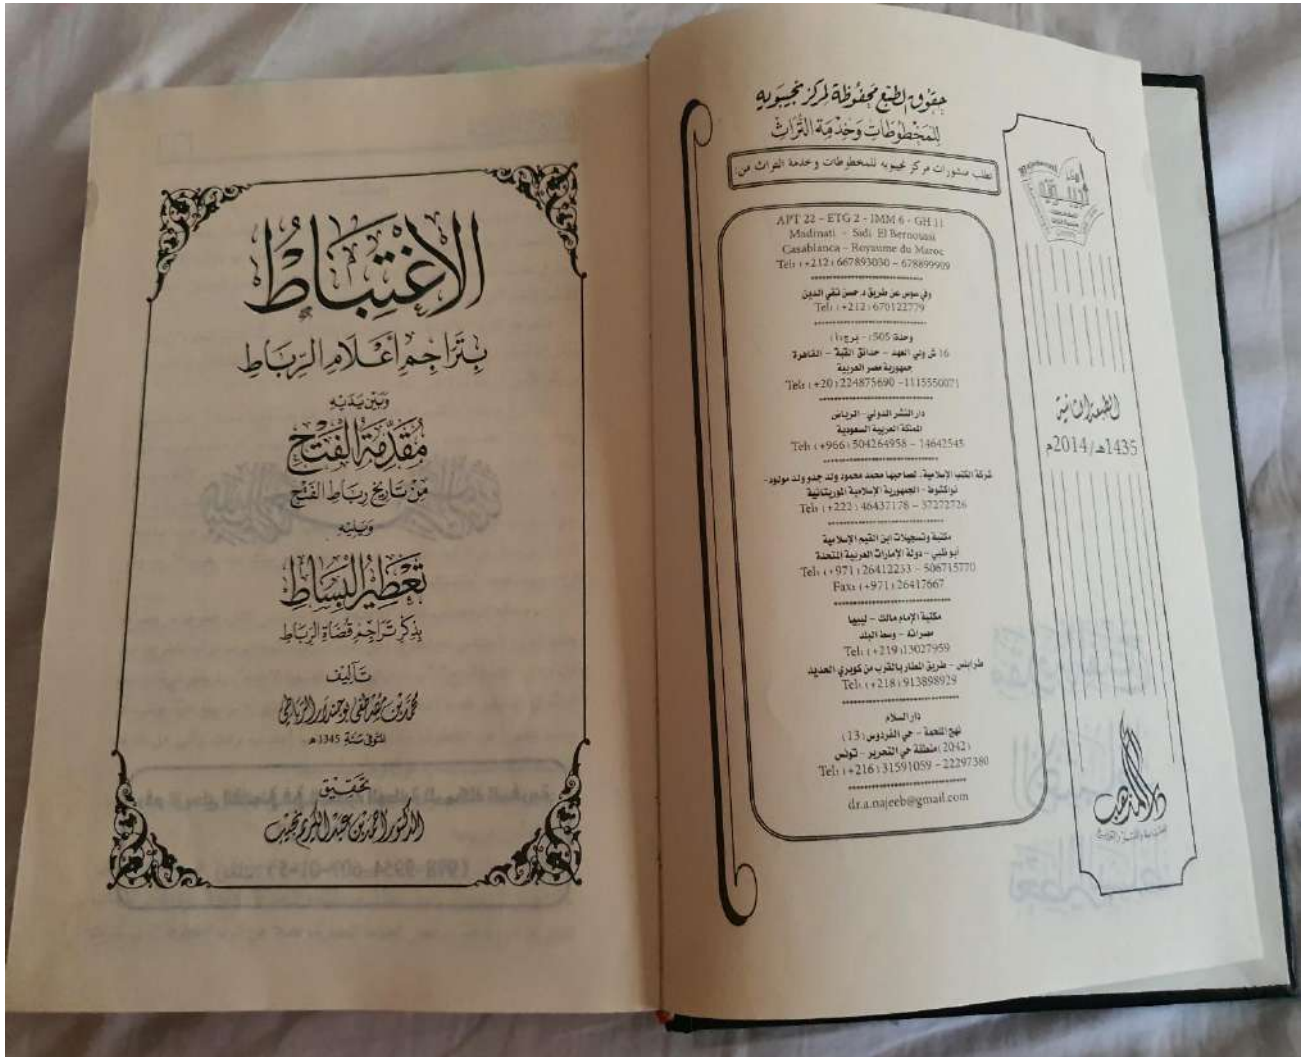 حقوق الطبع محفوظة لمركز نجيبويه
للمخطوطات وخدمة التراث
تطلب منشورات مركز نجيبويه للمخطوطات وخدمة التراث من:
APT 22 - ETG 2 - IMM 6 - GH 11
Madinati - Sidi El Bernoussi
Casablanca - Royaume du Maroc
Tel: (+212) 667893030 - 678899909
وفي سوس عن طريق د. حسن تقي الدين
Tel: (+212) 670122779
وحدة (505) - برج (1)
16 ش ولي العهد - حدائق القبة - القاهرة
جمهورية مصر العربية
Tel: (+20) 224875690 - 1115550071
دار النشر الدولي - الرياض
المملكة العربية السعودية
Tel: (+966) 504264958 - 14642545
شركة الكتب الإسلامية، لصاحبها محمد محمود ولد جدو ولد مولود -
نواكشوط - الجمهورية الإسلامية الموريتانية
Tel: (+222) 46437176 - 37272726
مكتبة وتسجيلات ابن القيم الإسلامية
أبو ظبي - دولة الإمارات العربية المتحدة
Tel: (+971) 26412233 - 506715770
Fax: (+971) 26417667
مكتبة الإمام مالك - ليبيا
مصراتة - وسط البلد
Tel: (+219) 13027959
طرابلس - طريق المطار بالقرب من كوبري الحديد
Tel: (+218) 913898929
دار السلام
نهج النجمة - حي الفردوس (13)
(2042) منطقة حي التحرير - تونس
Tel: (+216) 31591059 - 22297380
dr.a.najeeb@gmail.com
الطبعة الثانية
1435هـ/2014م
دار المذهب
الاغتباط
بتراجم أعلام الرباط
وبين يديه
مقدمة الفتح
من تاريخ رباط الفتح
ويليه
تعطير البساط
بذكر تراجم قضاة الرباط
تأليف
محمد بن مصطفى بوجندار الرباطي
المتوفى سنة 1345هـ
تحقيق
الدكتور أحمد بن عبد الكريم نجيب